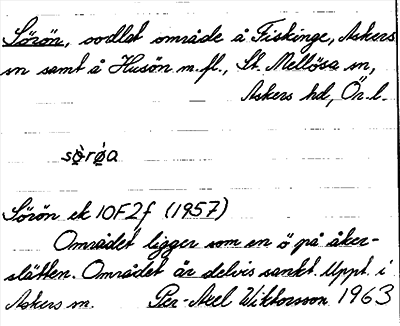 Sörön, oodlat område å Fiskinge, Askers
sn samt å Husön m.fl., St. Mellösa sn,
Askers hd, Ör. l.
sø̀rǿa
Sörön ek 10F2f (1957)
Området ligger som en ö på åker-
slätten. Området är delvis sankt. Uppt. i
Askers sn. Per-Axel Wiktorsson 1963